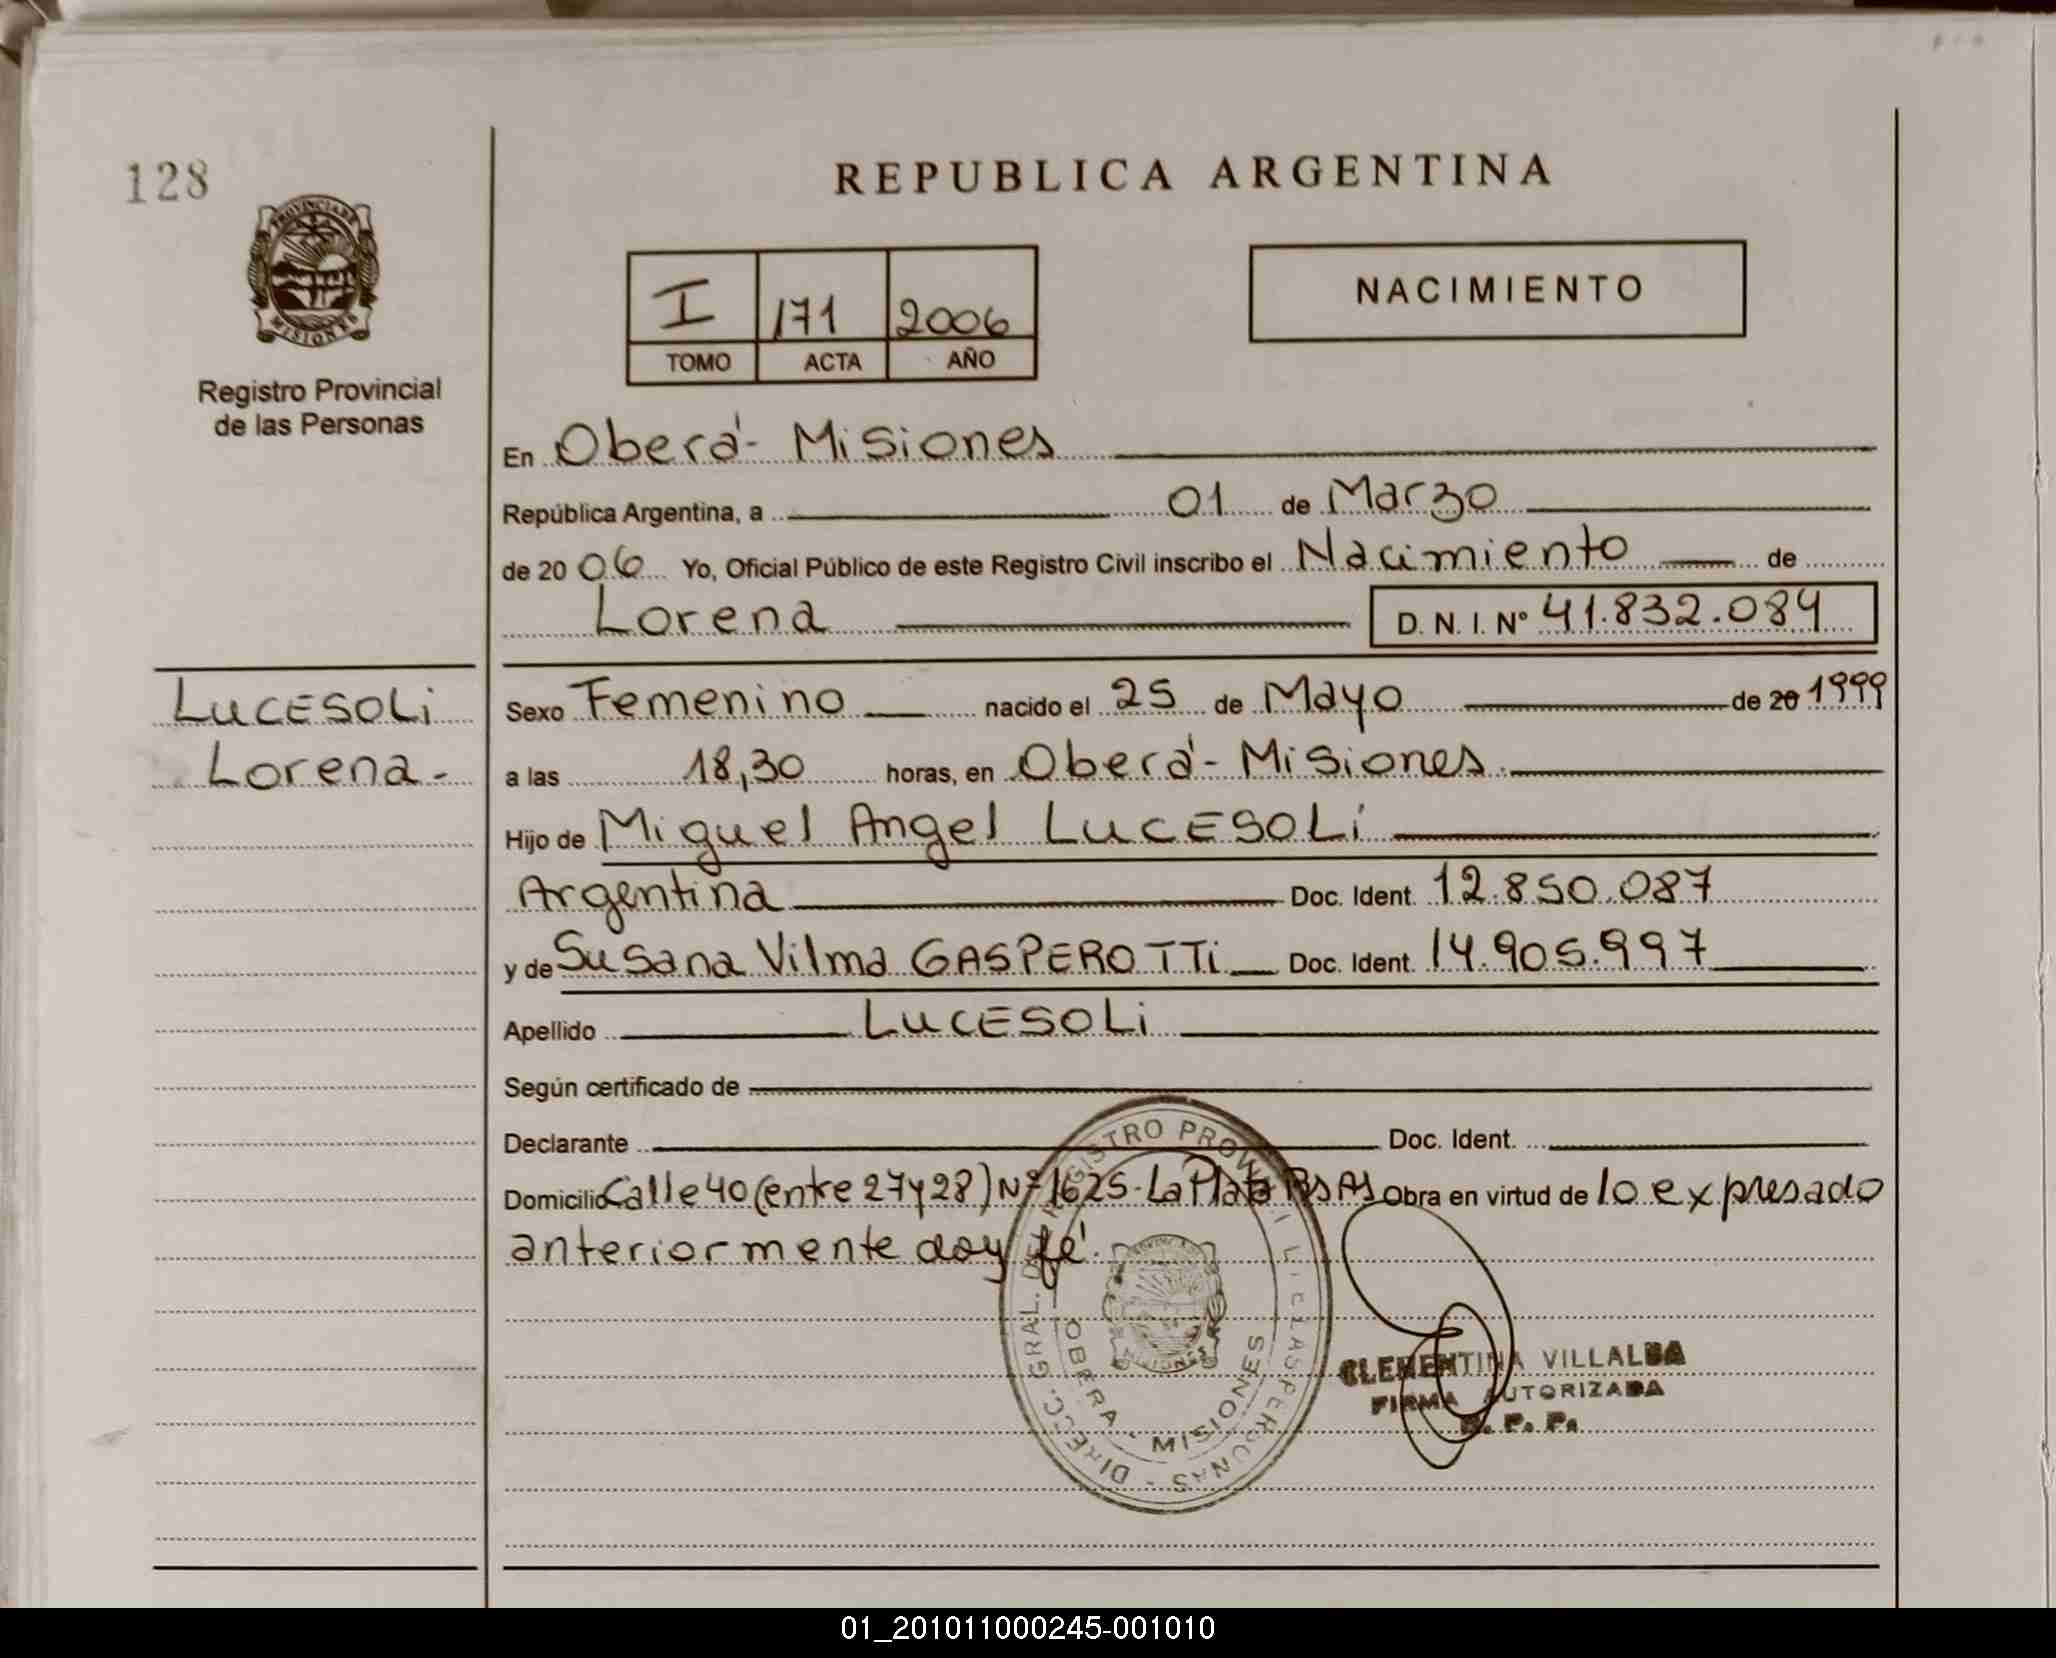 128
REPUBLICA ARGENTINA
PROVINCIA DE
MISIONES
Registro Provincial
de las Personas
I 171 2006
TOMO ACTA AÑO
NACIMIENTO
En Oberá - Misiones
República Argentina, a 01 de Marzo
de 20 06 Yo, Oficial Público de este Registro Civil inscribo el Nacimiento de
Lorena D. N. I. Nº 41.832.084
LUCESOLi
Lorena -
Sexo Femenino nacido el 25 de Mayo de 20 1999
a las 18,30 horas, en Oberá - Misiones.
Hijo de Miguel Angel LUCESOLi
Argentina Doc. Ident. 12.850.087
y de Susana Vilma GASPEROTTi Doc. Ident. 14.905.997
Apellido LUCESOLi
Según certificado de
Declarante Doc. Ident.
Domicilio Calle 40 (entre 27 y 28) Nº 1625 - La Plata Bs As Obra en virtud de lo expresado
anteriormente doy fé.
DIRECC. GRAL. DEL REGISTRO PROVINCIAL DE LAS PERSONAS -
OBERA - MISIONES
MISIONES
CLEMENTINA VILLALBA
FIRMA AUTORIZADA
R. P. P.
01_201011000245-001010